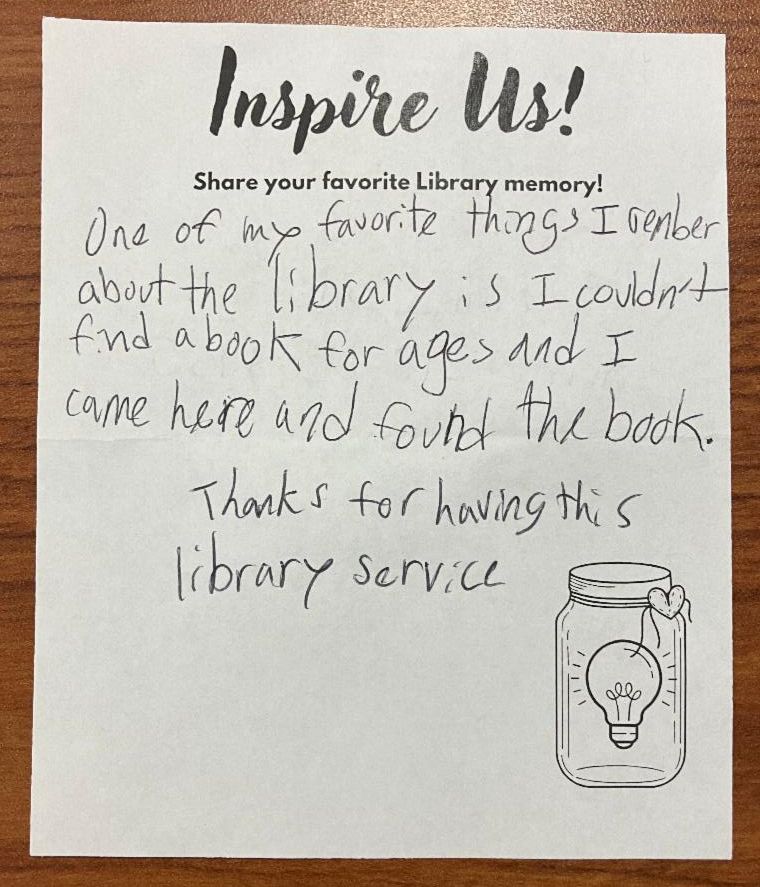 Inspire Us!
Share your favorite Library memory!
One of my favorite things I rember
about the library is I couldn't
find a book for ages and I
came here and found the book.
Thanks for having this
library service